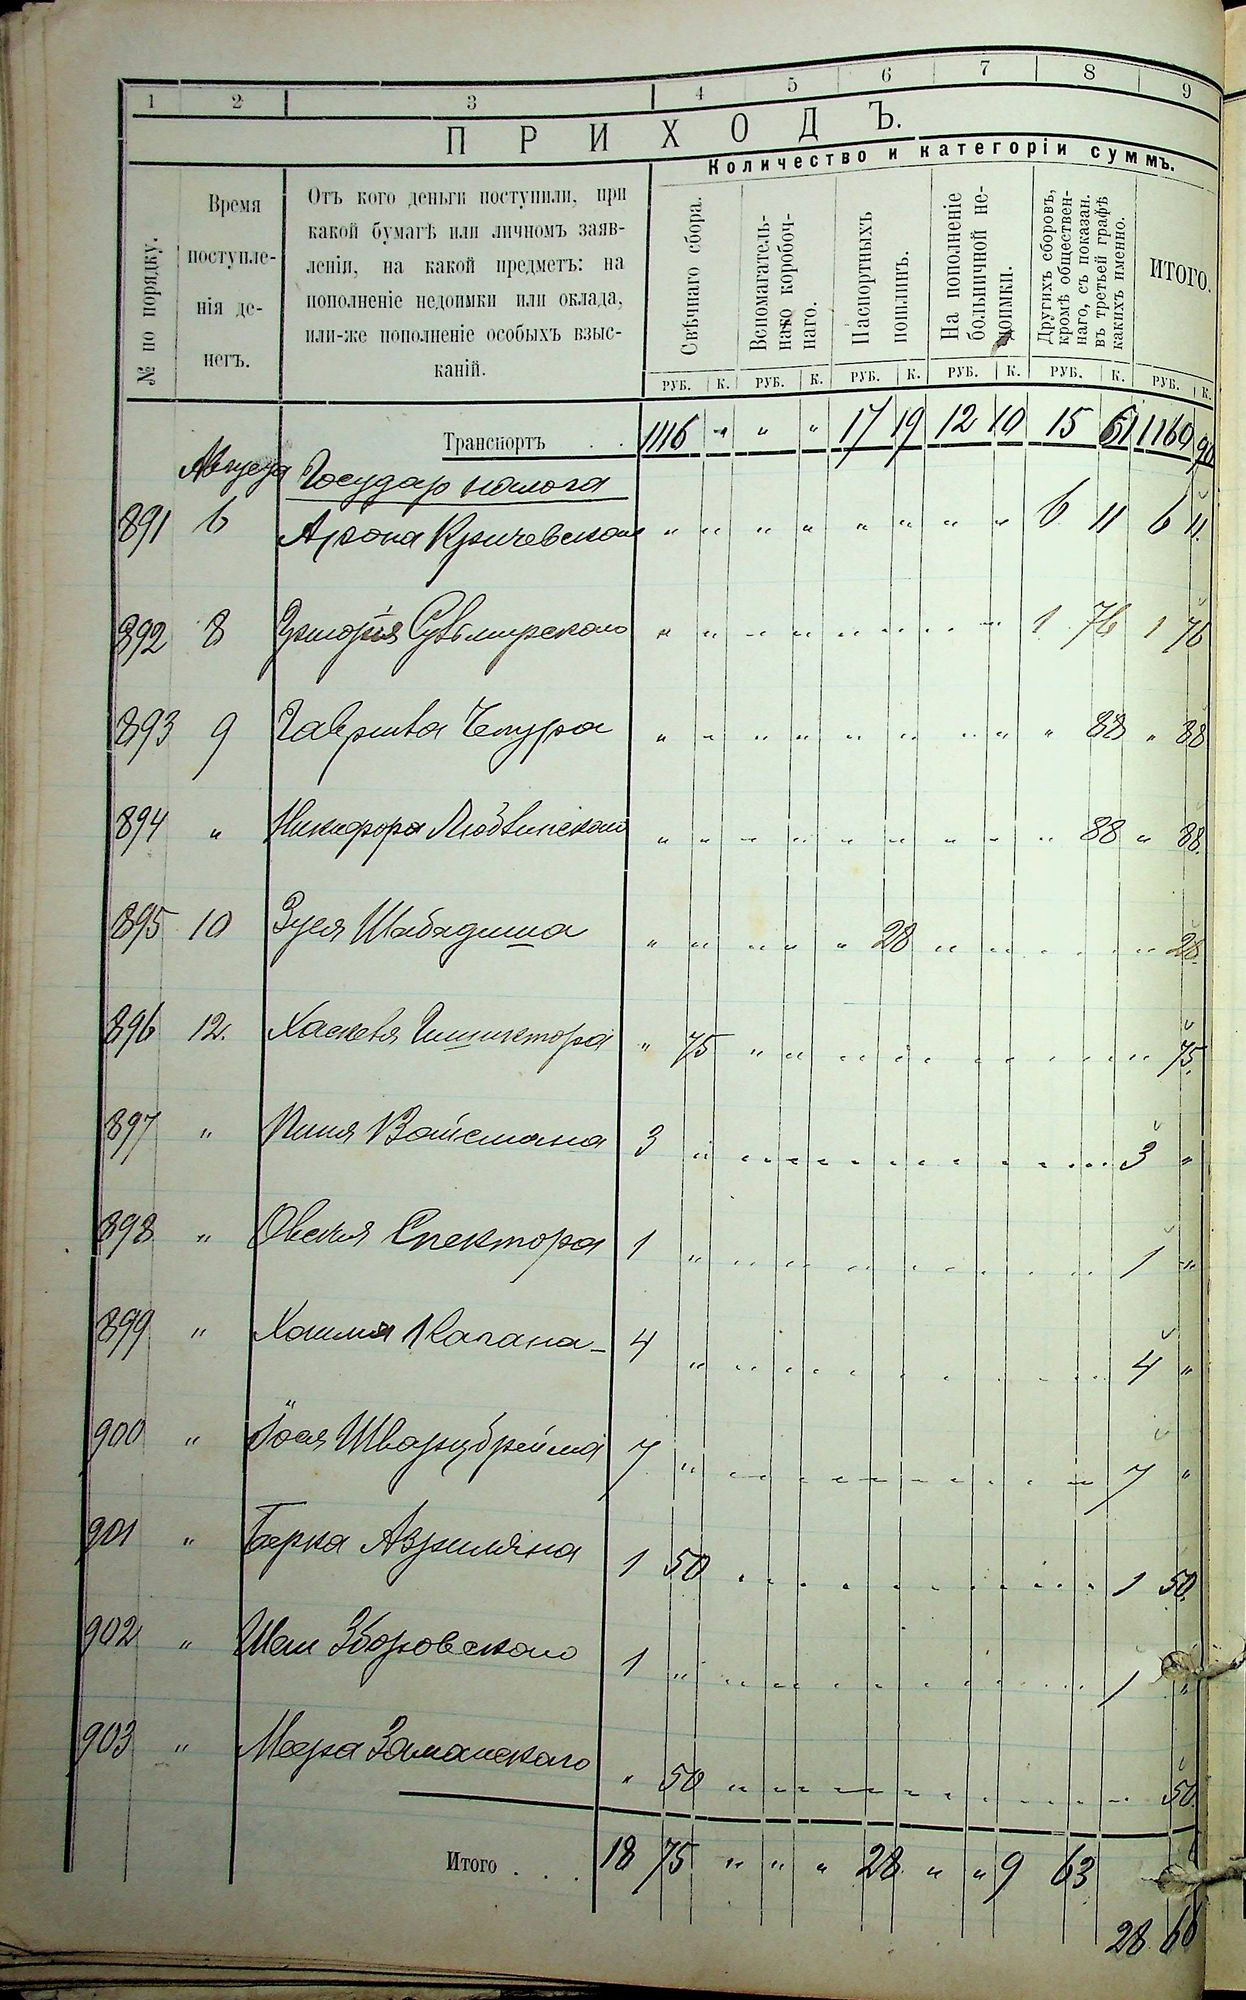 1 2 3 4 5 6 7 8 9
ПРИХОДЪ.
Количество и категоріи суммъ.
№ по порядку.
Время
поступле-
нія де-
негъ.
Отъ кого деньги поступили, при
какой бумагѣ или личномъ заяв-
леніи, на какой предметъ: на
пополненіе недоимки или оклада,
или-же пополненіе особыхъ взыс-
каній.
Свѣчнаго сбора.
Вспомагатель-
наго коробоч-
наго.
Паспортныхъ
пошлинъ.
На пополненіе
больничной не-
доимки.
Другихъ сборовъ,
кромѣ обществен-
наго, съ показан.
въ третьей графѣ
какихъ именно.
ИТОГО.
РУБ. К. РУБ. К. РУБ. К. РУБ. К. РУБ. К. РУБ. К.
Транспортъ . . 1116 " " " 17 19 12 10 15 61 1160 90
Августа Государ налога
891 6 Арона Кричевскаго " " " " " " " " 6 11 6 11
892 8 " " " " " " " " 1 76 1 76
893 9 Гаврила " " " " " " " " " 88 " 88
894 " Никифора " " " " " " " " " 88 " 88
895 10 Зуся Шабадаша " " " " " 28 " " " " " 28
896 12. Хаскеля " 75 " " " " " " " " " 75
897 " Пиня Вайсмана 3 " " " " " " " " " 3 "
898 " Овсея Спектора 1 " " " " " " " " " 1 "
899 " Хаима Капана 4 " " " " " " " " " 4 "
900 " Іося Шварцбрейма 7 " " " " " " " " " 7 "
901 " Берка Азриляна 1 50 " " " " " " " " 1 50
902 " Шаи Зборовскаго 1 " " " " " " " " " 1 "
903 " Меера Заманскаго " 50 " " " " " " " " " 50
Итого . . . 18 75 " " " 28 " " 9 63
28 66